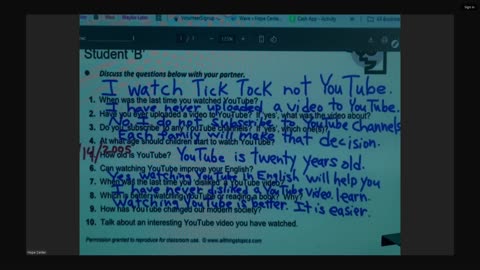 Sign in
VolunteerSignup
Wave • Hope Center
Cash App - Activity
All Bookmarks
Student 'B'
Discuss the questions below with your partner.
I watch Tick Tock not YouTube.
1. When was the last time you watched YouTube?
I have never uploaded a video to YouTube.
2. Have you ever uploaded a video to YouTube? If 'yes', what was the video about?
No I do not subscribe to YouTube channels
3. Do you subscribe to any YouTube channels? If 'yes', which one(s)?
Each family will make that decision.
4. At what age should children start to watch YouTube?
/14/2005
5. How old is YouTube? YouTube is twenty years old.
6. Can watching YouTube improve your English?
Yes watching YouTube in English will help you
learn.
7. When was the last time you 'disliked' a YouTube video?
I have never disliked a YouTube video.
8. Which is better: watching YouTube or reading a book? Why?
Watching YouTube is better. It is easier.
9. How has YouTube changed our modern society?
10. Talk about an interesting YouTube video you have watched.
Permission granted to reproduce for classroom use. © www.allthingstopics.com
Hope Center